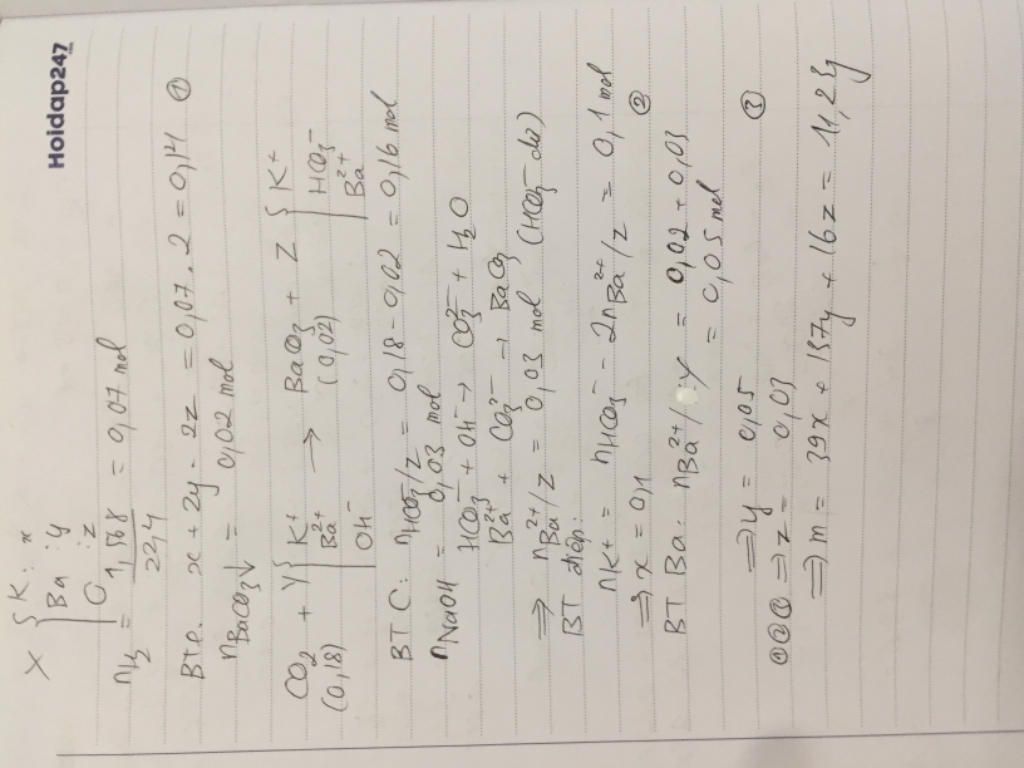 Hoidap247
X { K : x
Ba : y
O : z
nH2 = 1,568 / 22,4 = 0,07 mol
BTe: x + 2y - 2z = 0,07.2 = 0,14 ①
nBaCO3↓ = 0,02 mol
CO2 + Y { K+ → BaCO3 + Z { K+
(0,18) Ba2+ (0,02) HCO3-
OH- Ba2+
BT C: nHCO3-/Z = 0,18 - 0,02 = 0,16 mol
nNaOH = 0,03 mol
HCO3- + OH- → CO32- + H2O
Ba2+ + CO32- → BaCO3
⇒ nBa2+/Z = 0,03 mol (HCO3- dư)
BT điện:
nK+ = nHCO3- - 2nBa2+/Z = 0,1 mol
⇒ x = 0,1 ②
BT Ba: nBa2+/Y = 0,02 + 0,03
= 0,05 mol
⇒ y = 0,05 ③
①②③ ⇒ z = 0,03
⇒ m = 39x + 137y + 16z = 11,23g